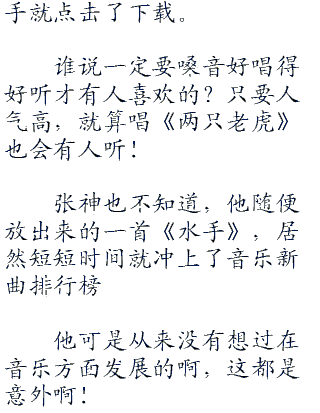 手就点击了下载。
谁说一定要嗓音好唱得
好听才有人喜欢的？只要人
气高，就算唱《两只老虎》
也会有人听！
张神也不知道，他随便
放出来的一首《水手》，居
然短短时间就冲上了音乐新
曲排行榜
他可是从来没有想过在
音乐方面发展的啊，这都是
意外啊！